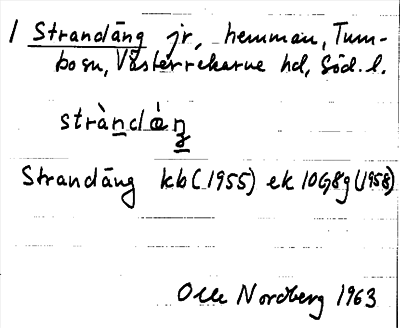 1 Strandäng jr, hemman, Tum-
bo sn, Västerrekarne hd, Söd. l.
stràndæ̀ŋ
Strandäng kb (1955) ek 10G8g (1958)
Olle Nordberg 1963